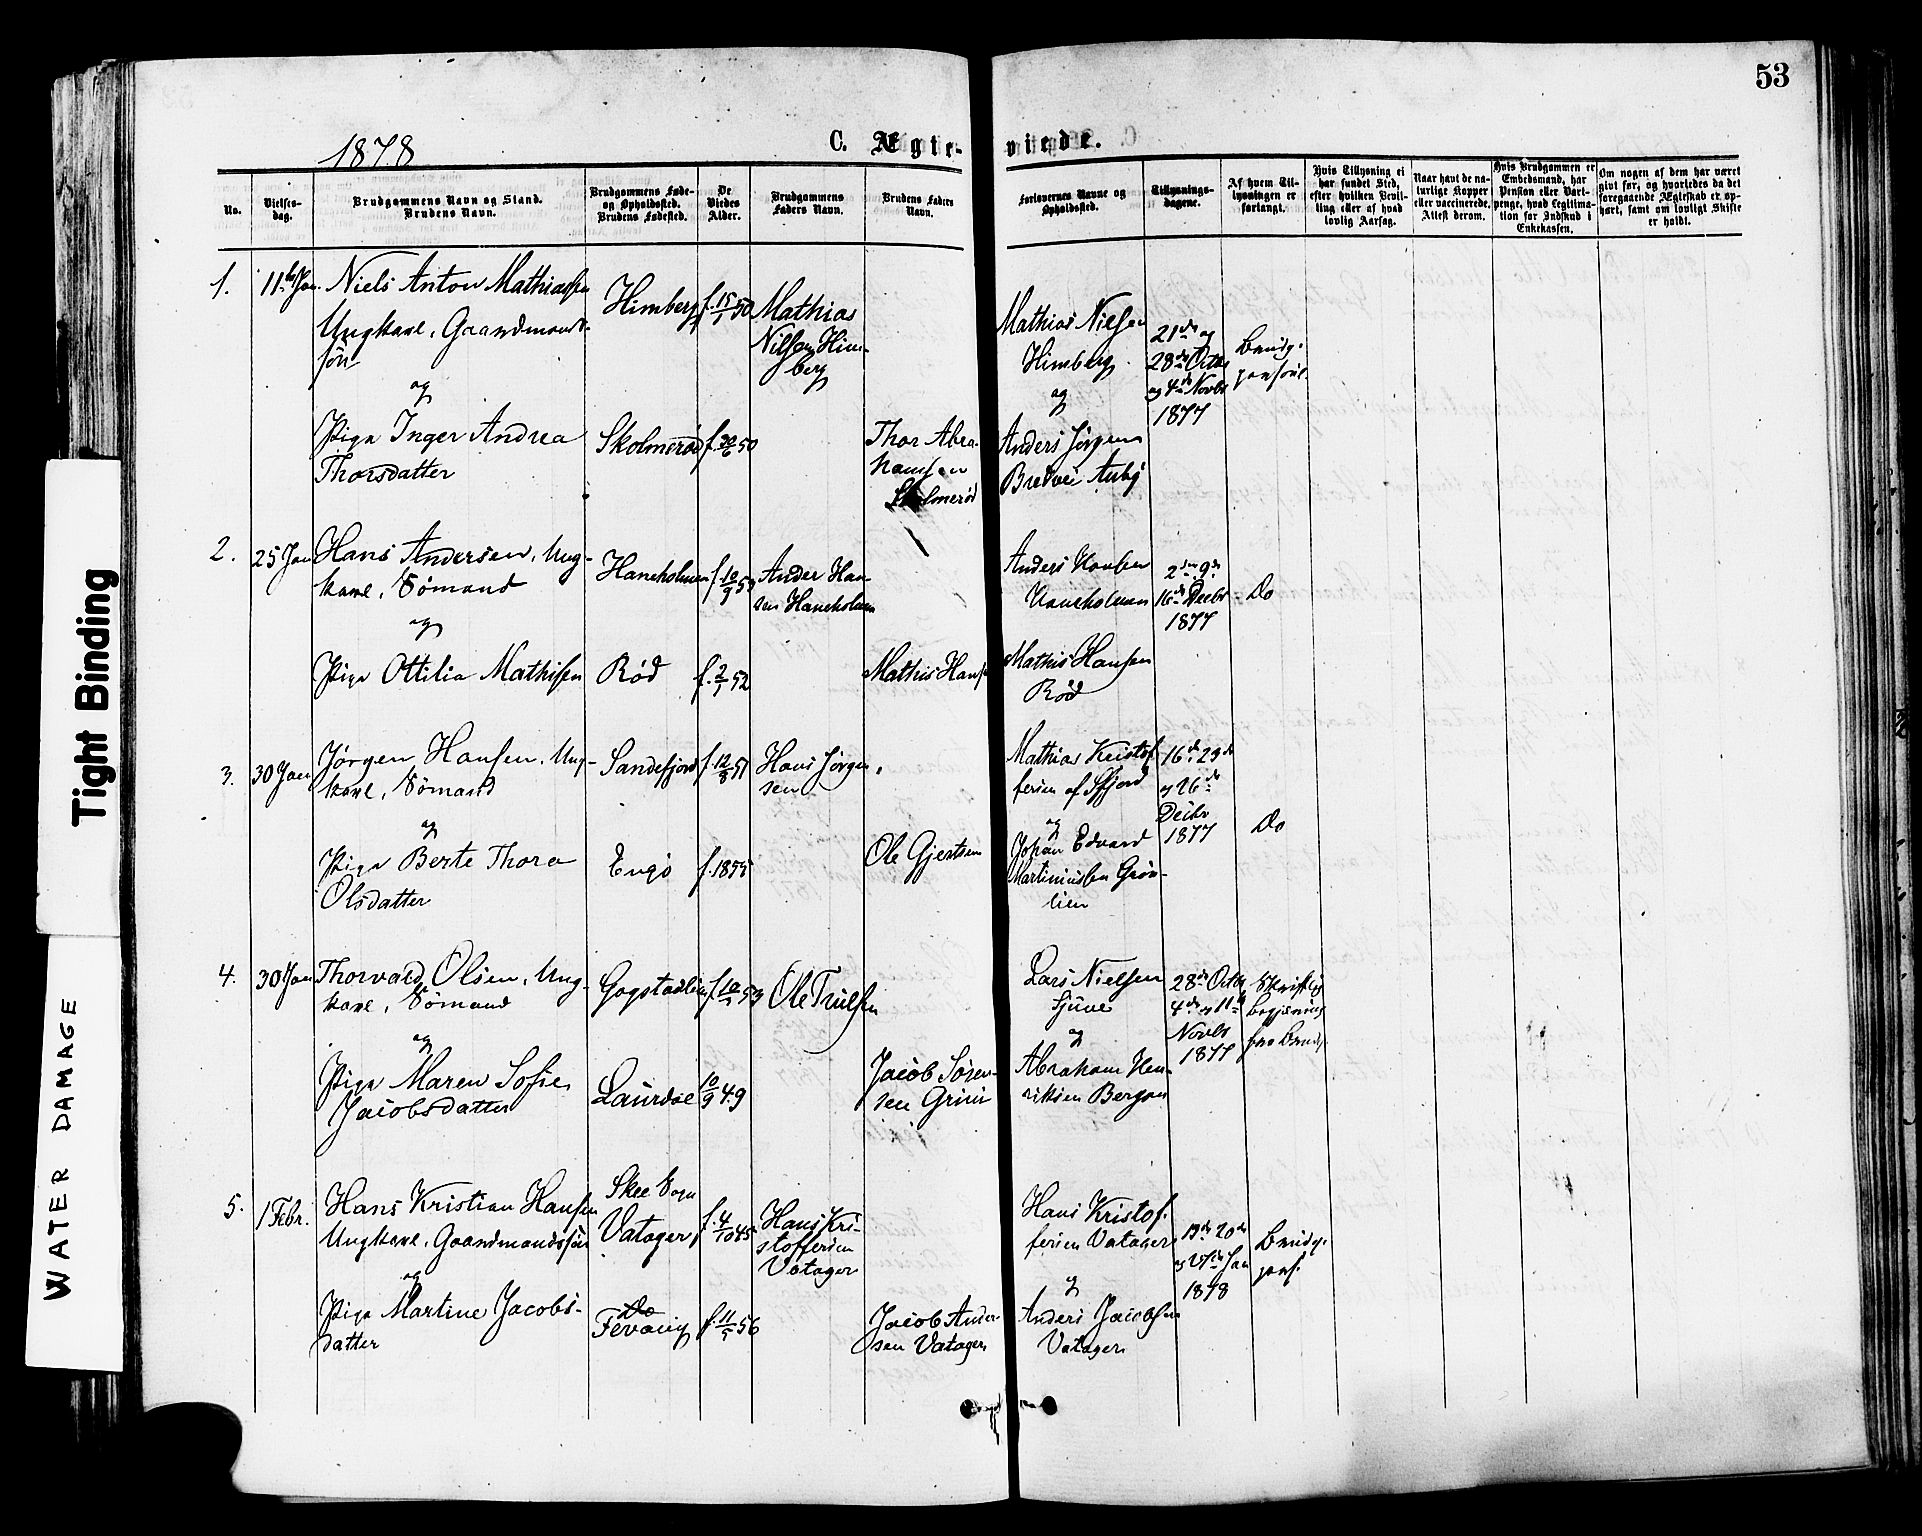 53
1878
C. Ægte-
viede.
No.
Vielses-
dag.
Brudgommens Navn og Stand.
Brudens Navn.
Brudgommens Føde-
og Opholdssted.
Brudens Fødested.
De
Viedes
Alder.
Brudgommens
Faders Navn.
Brudens Faders
Navn.
Forlovernes Navne og
Opholdssted.
Tillysnings-
dagene.
Af hvem Til-
lysningen er
forlangt.
Hvis Tillysning ei
har fundet Sted,
efter hvilken Bevil-
ling eller af hvad
lovlig Aarsag.
Naar havt de na-
turlige Kopper
eller vaccinerede.
Attest derom.
Hvis Brudgommen er
Embedsmand, har
Pension eller Vart-
penge, hvad Legitima-
tion for Indskud i
Enkekassen.
Om nogen af dem har været
gift før, og hvorledes da det
foregaaende Ægteskab er op-
hørt, samt om lovligt Skifte
er holdt.
1.
11te Jan.
Niels Anton Mathiassen
Ungkarl, Gaardmands-
søn
og
Pige Inger Andrea
Thorsdatter
Himberg
Skolmerød
f. 15/1 50
f. 30/6 50
Mathias
Nilsen Him-
berg
Thor Abra-
hamsen
Skolmerød
Mathias Nielsen
Himberg
og
Anders Jørgens
Bredvei Aaby
21de og
28de Octbr
og 4de Novbr
1877
Brudg.
personl.
2.
25 Jan
Hans Andersen, Ung-
karl, Sømand
og
Pige Ottilia Mathisen
Haneholmen
Rød
f. 10/9 53
f. 2/1 52
Ander Han-
sen Haneholmen
Mathis Hansen
Anders Hansen
Haneholmen
Mathis Hansen
Rød
2den 9de
16de Decbr
1877
Do
3.
30 Jan
Jørgen Hansen, Ung-
karl, Sømand
og
Pige Berte Thora
Olsdatter
Sandefjord
Engø
f. 12/8 51
f. 1855
Hans Jørgen-
sen
Ole Gjertsen
Mathias Kristof-
fersen af Sfjord
og
Johan Edvard
Martiniussen Grøn-
lien
16de 23de
og 26de
Decbr
1877
Do
4.
30 Jan
Thorvald Olsen, Ung-
karl, Sømand
og
Pige Maren Sofie
Jacobsdatter
Gogstadlien
Laurdae
10/9 49
Ole Trulsen
Jacob Søren-
sen
Lars Nielsen
Sjuve
og
Abraham Hen-
riksen Bergan
28de Octbr
4de og 11te
Novbr
1877
Skriftlig
Begjæring
fra Brudg.
5.
1 Febr.
Hans Kristian Hansen
Ungkarl, Gaardmandssøn
og
Pige Martine Jacobs-
datter
Skee Sogn
Vatager
Do
Fevang
f. 4/10 45
f. 11/5 56
Hans Kri-
stoffersen
Vatager
Jacob Ander-
sen Vatager
Hans Kristof-
fersen Vatager
og
Anders Jacobsen
Vatager
13de 20de
og 27de Jan
1878
Brudg.
pers.
Tight Binding
WATER DAMAGE